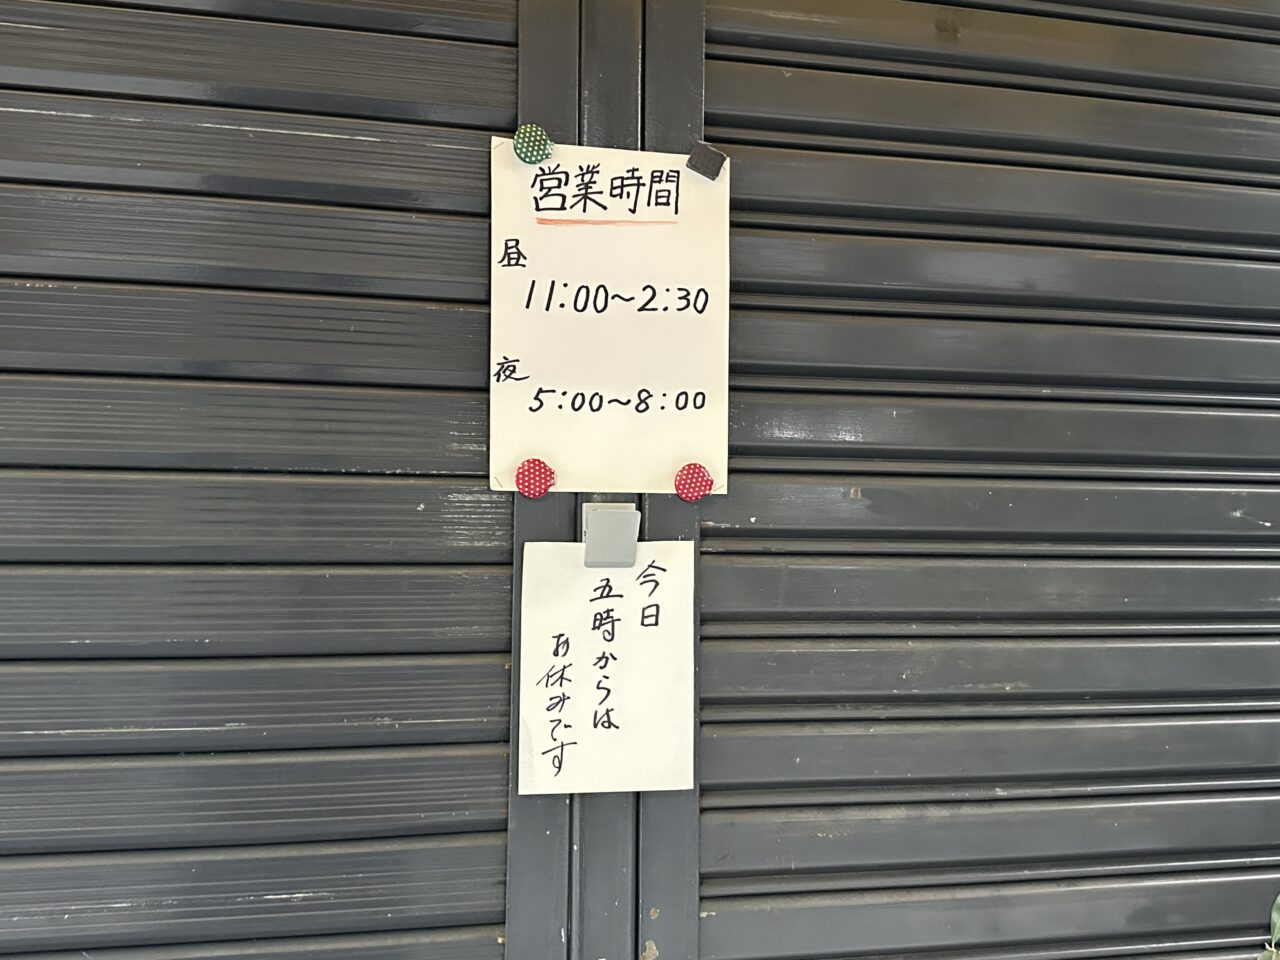 営業時間
昼
11:00〜2:30
夜
5:00〜8:00
今日
五時からは
お休みです